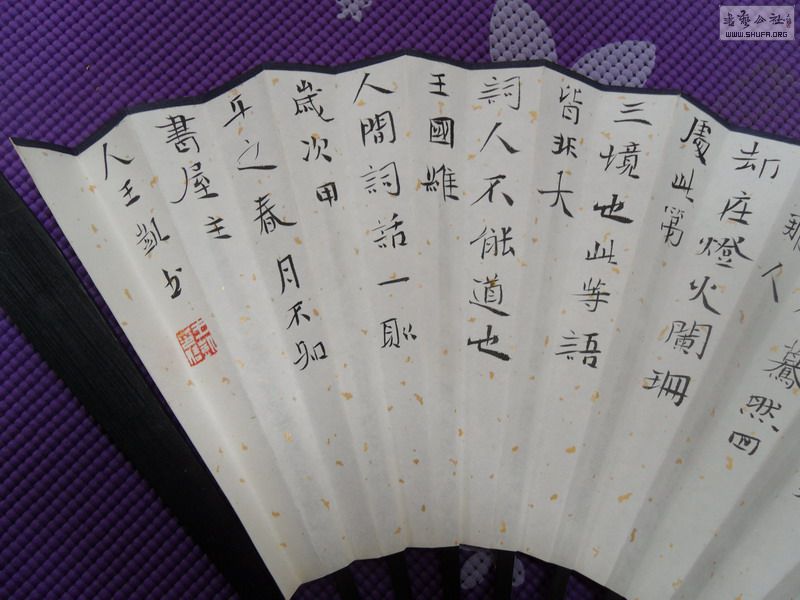 驀然回
那人
却在燈火闌珊
處此第
三境也此等語
皆非大
詞人不能道也
王國維
人間詞話一則
歲次甲
午之春月不知
書屋主
人王凱书
書藝公社
WWW.SHUFA.ORG